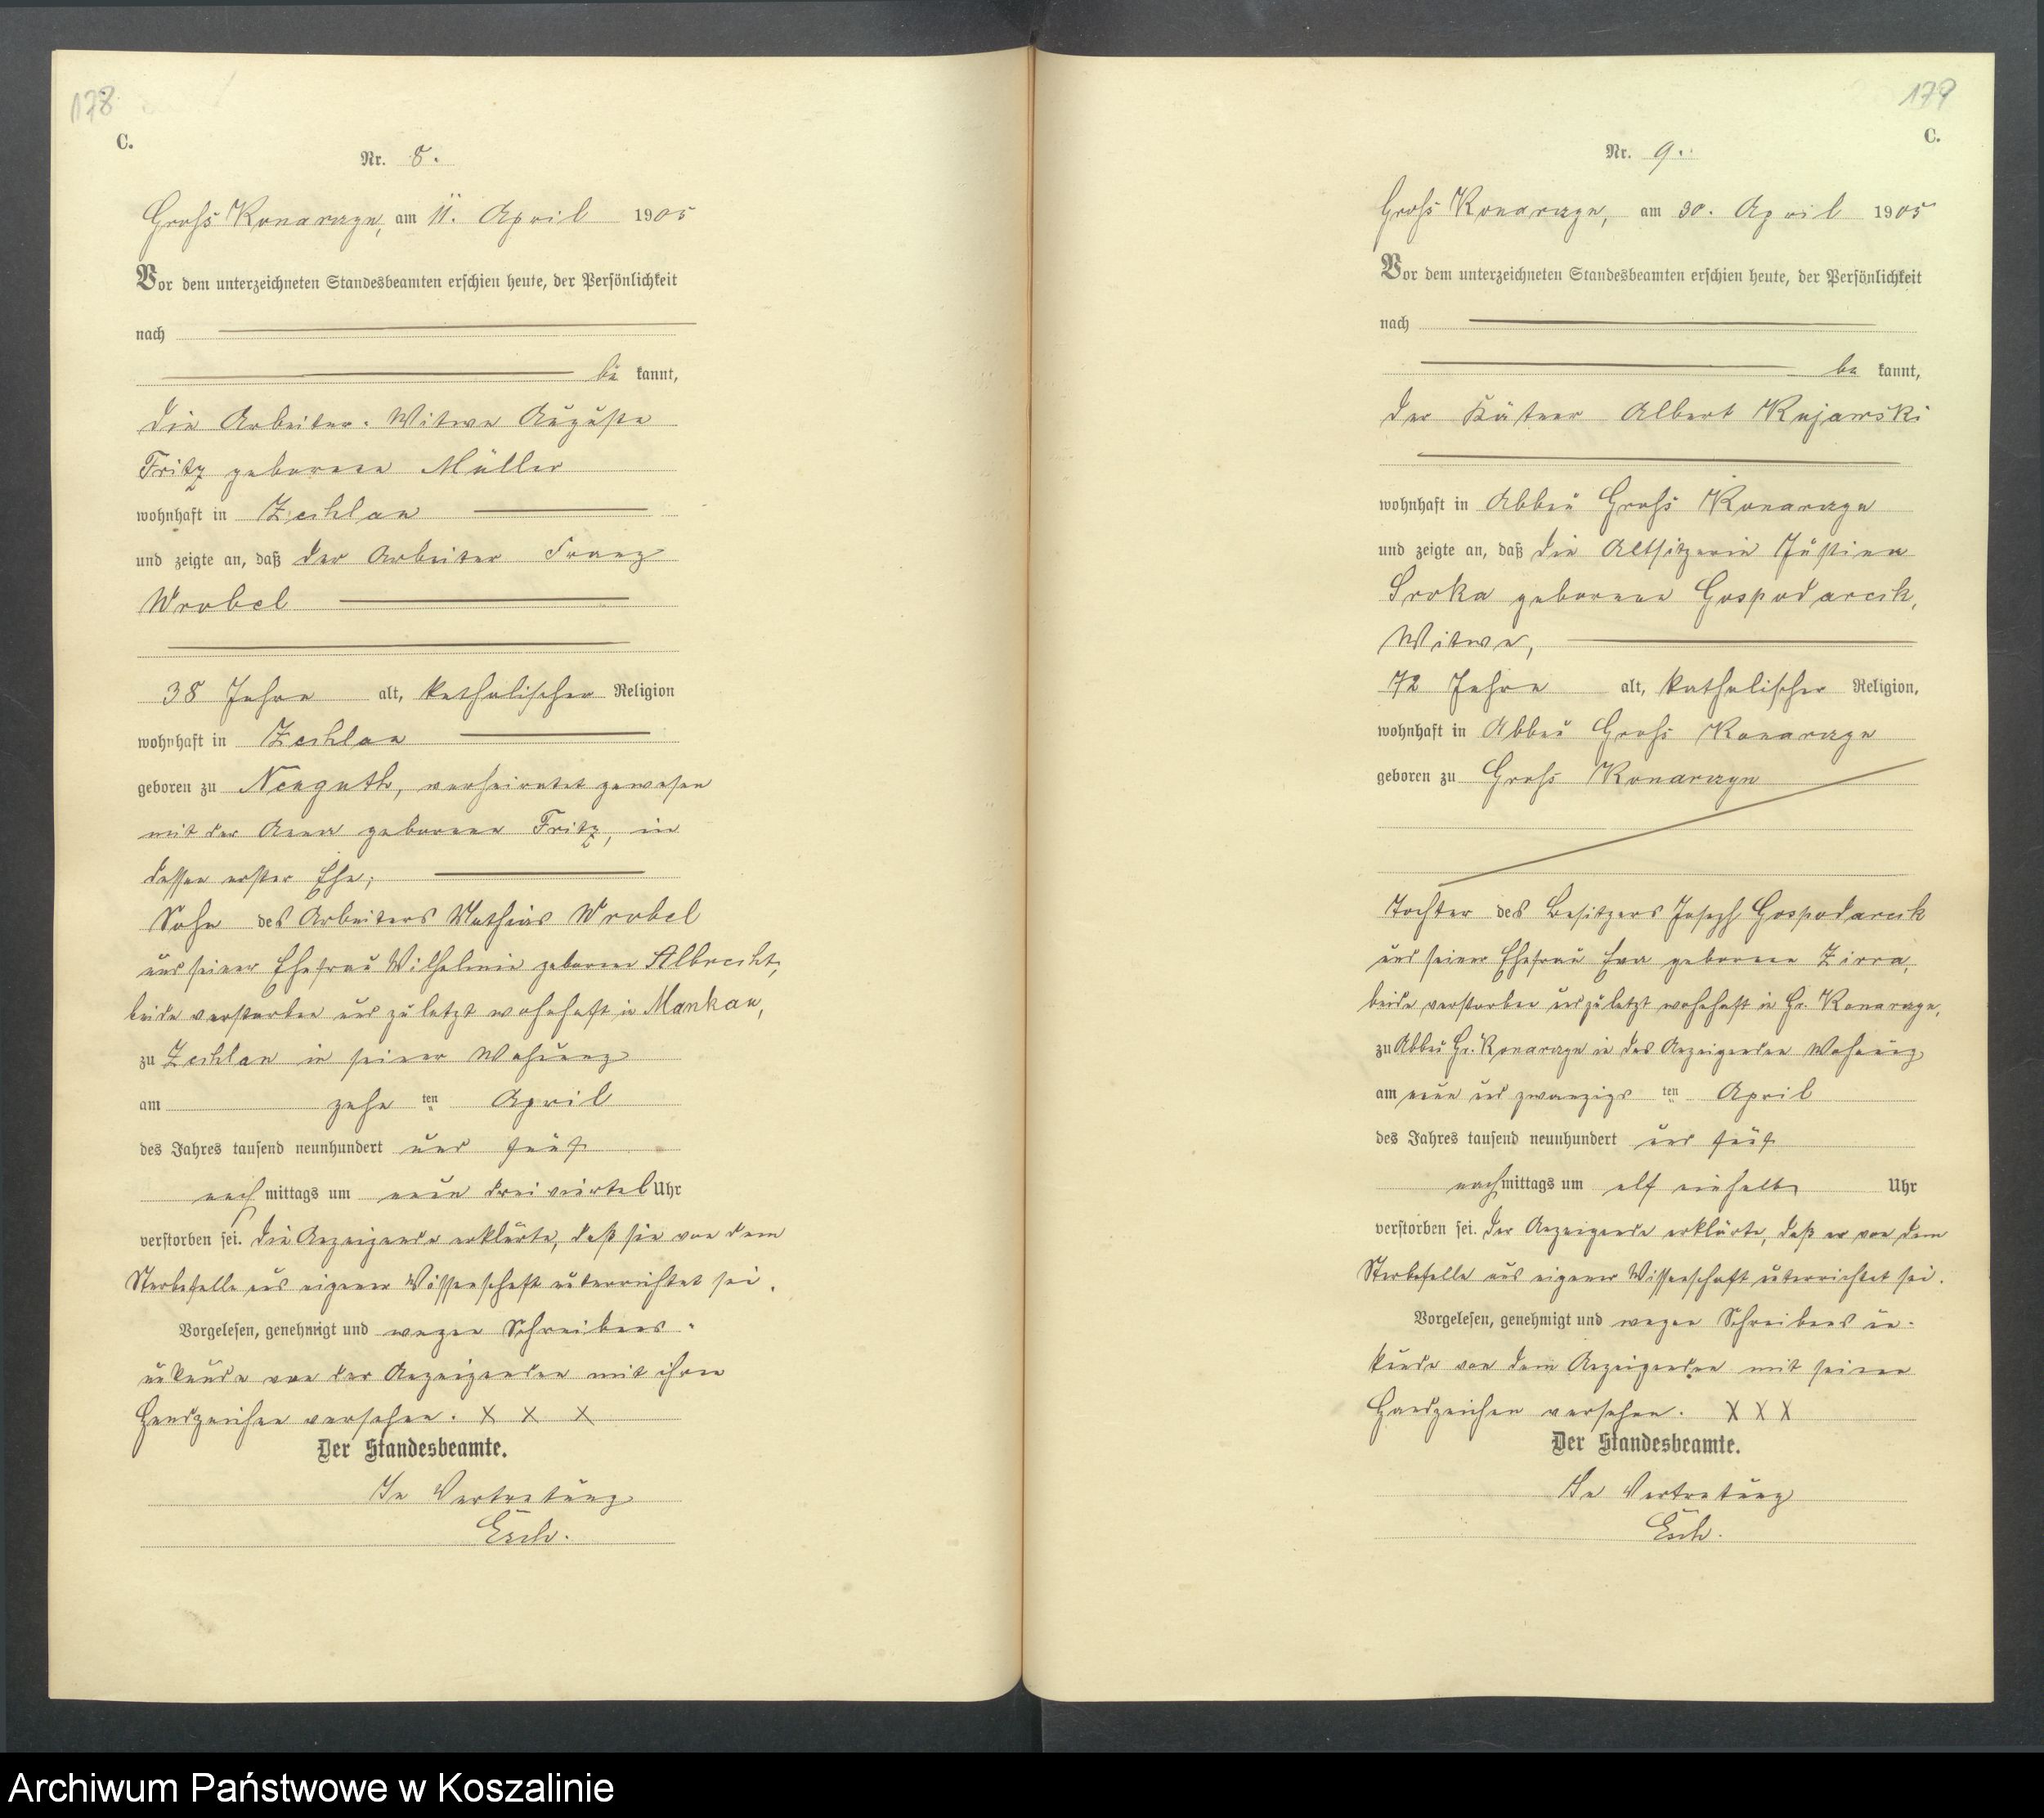 178
C.
Nr. 8.
Groß Konarzyn, am 11. April 1905
Vor dem unterzeichneten Standesbeamten erschien heute, der Persönlichkeit
nach
be kannt,
die Arbeiter-Witwe Auguste
Fritz geborene Müller
wohnhaft in Zechlau
und zeigte an, daß der Arbeiter Franz
Wrobel
38 Jahre alt, katholischer Religion
wohnhaft in Zechlau
geboren zu Neuguth, verheiratet gewesen
mit der Anna geborene Fritz, in
dessen erster Ehe;
Sohn des Arbeiters Mathias Wrobel
und seiner Ehefrau Wilhelmine geborene Albrecht,
beide verstorben und zuletzt wohnhaft in Mankau,
zu Zechlau in seiner Wohnung
am zehn ten April
des Jahres tausend neunhundert und fünf
nach mittags um neun dreiviertel Uhr
verstorben sei. Die Anzeigende erklärte, daß sie von dem
Sterbefalle aus eigener Wissenschaft unterrichtet sei.
Vorgelesen, genehmigt und wegen Schreibens-
unkunde von der Anzeigenden mit ihren
Handzeichen versehen. X X X
Der Standesbeamte.
In Vertretung
Esch.
179
C.
Nr. 9.
Groß Konarzyn, am 30. April 1905
Vor dem unterzeichneten Standesbeamten erschien heute, der Persönlichkeit
nach
be kannt,
der Kätner Albert Kujawski
wohnhaft in Abbau Groß Konarzyn
und zeigte an, daß die Altsitzerin Justina
Sroka geborene Gospodarcik,
Witwe,
72 Jahre alt, katholischer Religion,
wohnhaft in Abbau Groß Konarzyn
geboren zu Groß Konarzyn
Tochter des Besitzers Joseph Gospodarcik
und seiner Ehefrau Eva geborene Zirra,
beide verstorben und zuletzt wohnhaft in Gr. Konarzyn,
zu Abbau Gr. Konarzyn in des Anzeigenden Wohnung
am neun und zwanzigs ten April
des Jahres tausend neunhundert und fünf
nach mittags um elf einhalb Uhr
verstorben sei. Der Anzeigende erklärte, daß er von dem
Sterbefalle aus eigener Wissenschaft unterrichtet sei.
Vorgelesen, genehmigt und wegen Schreibens un-
kunde von dem Anzeigenden mit seinen
Handzeichen versehen. X X X
Der Standesbeamte.
In Vertretung
Esch.
Archiwum Państwowe w Koszalinie